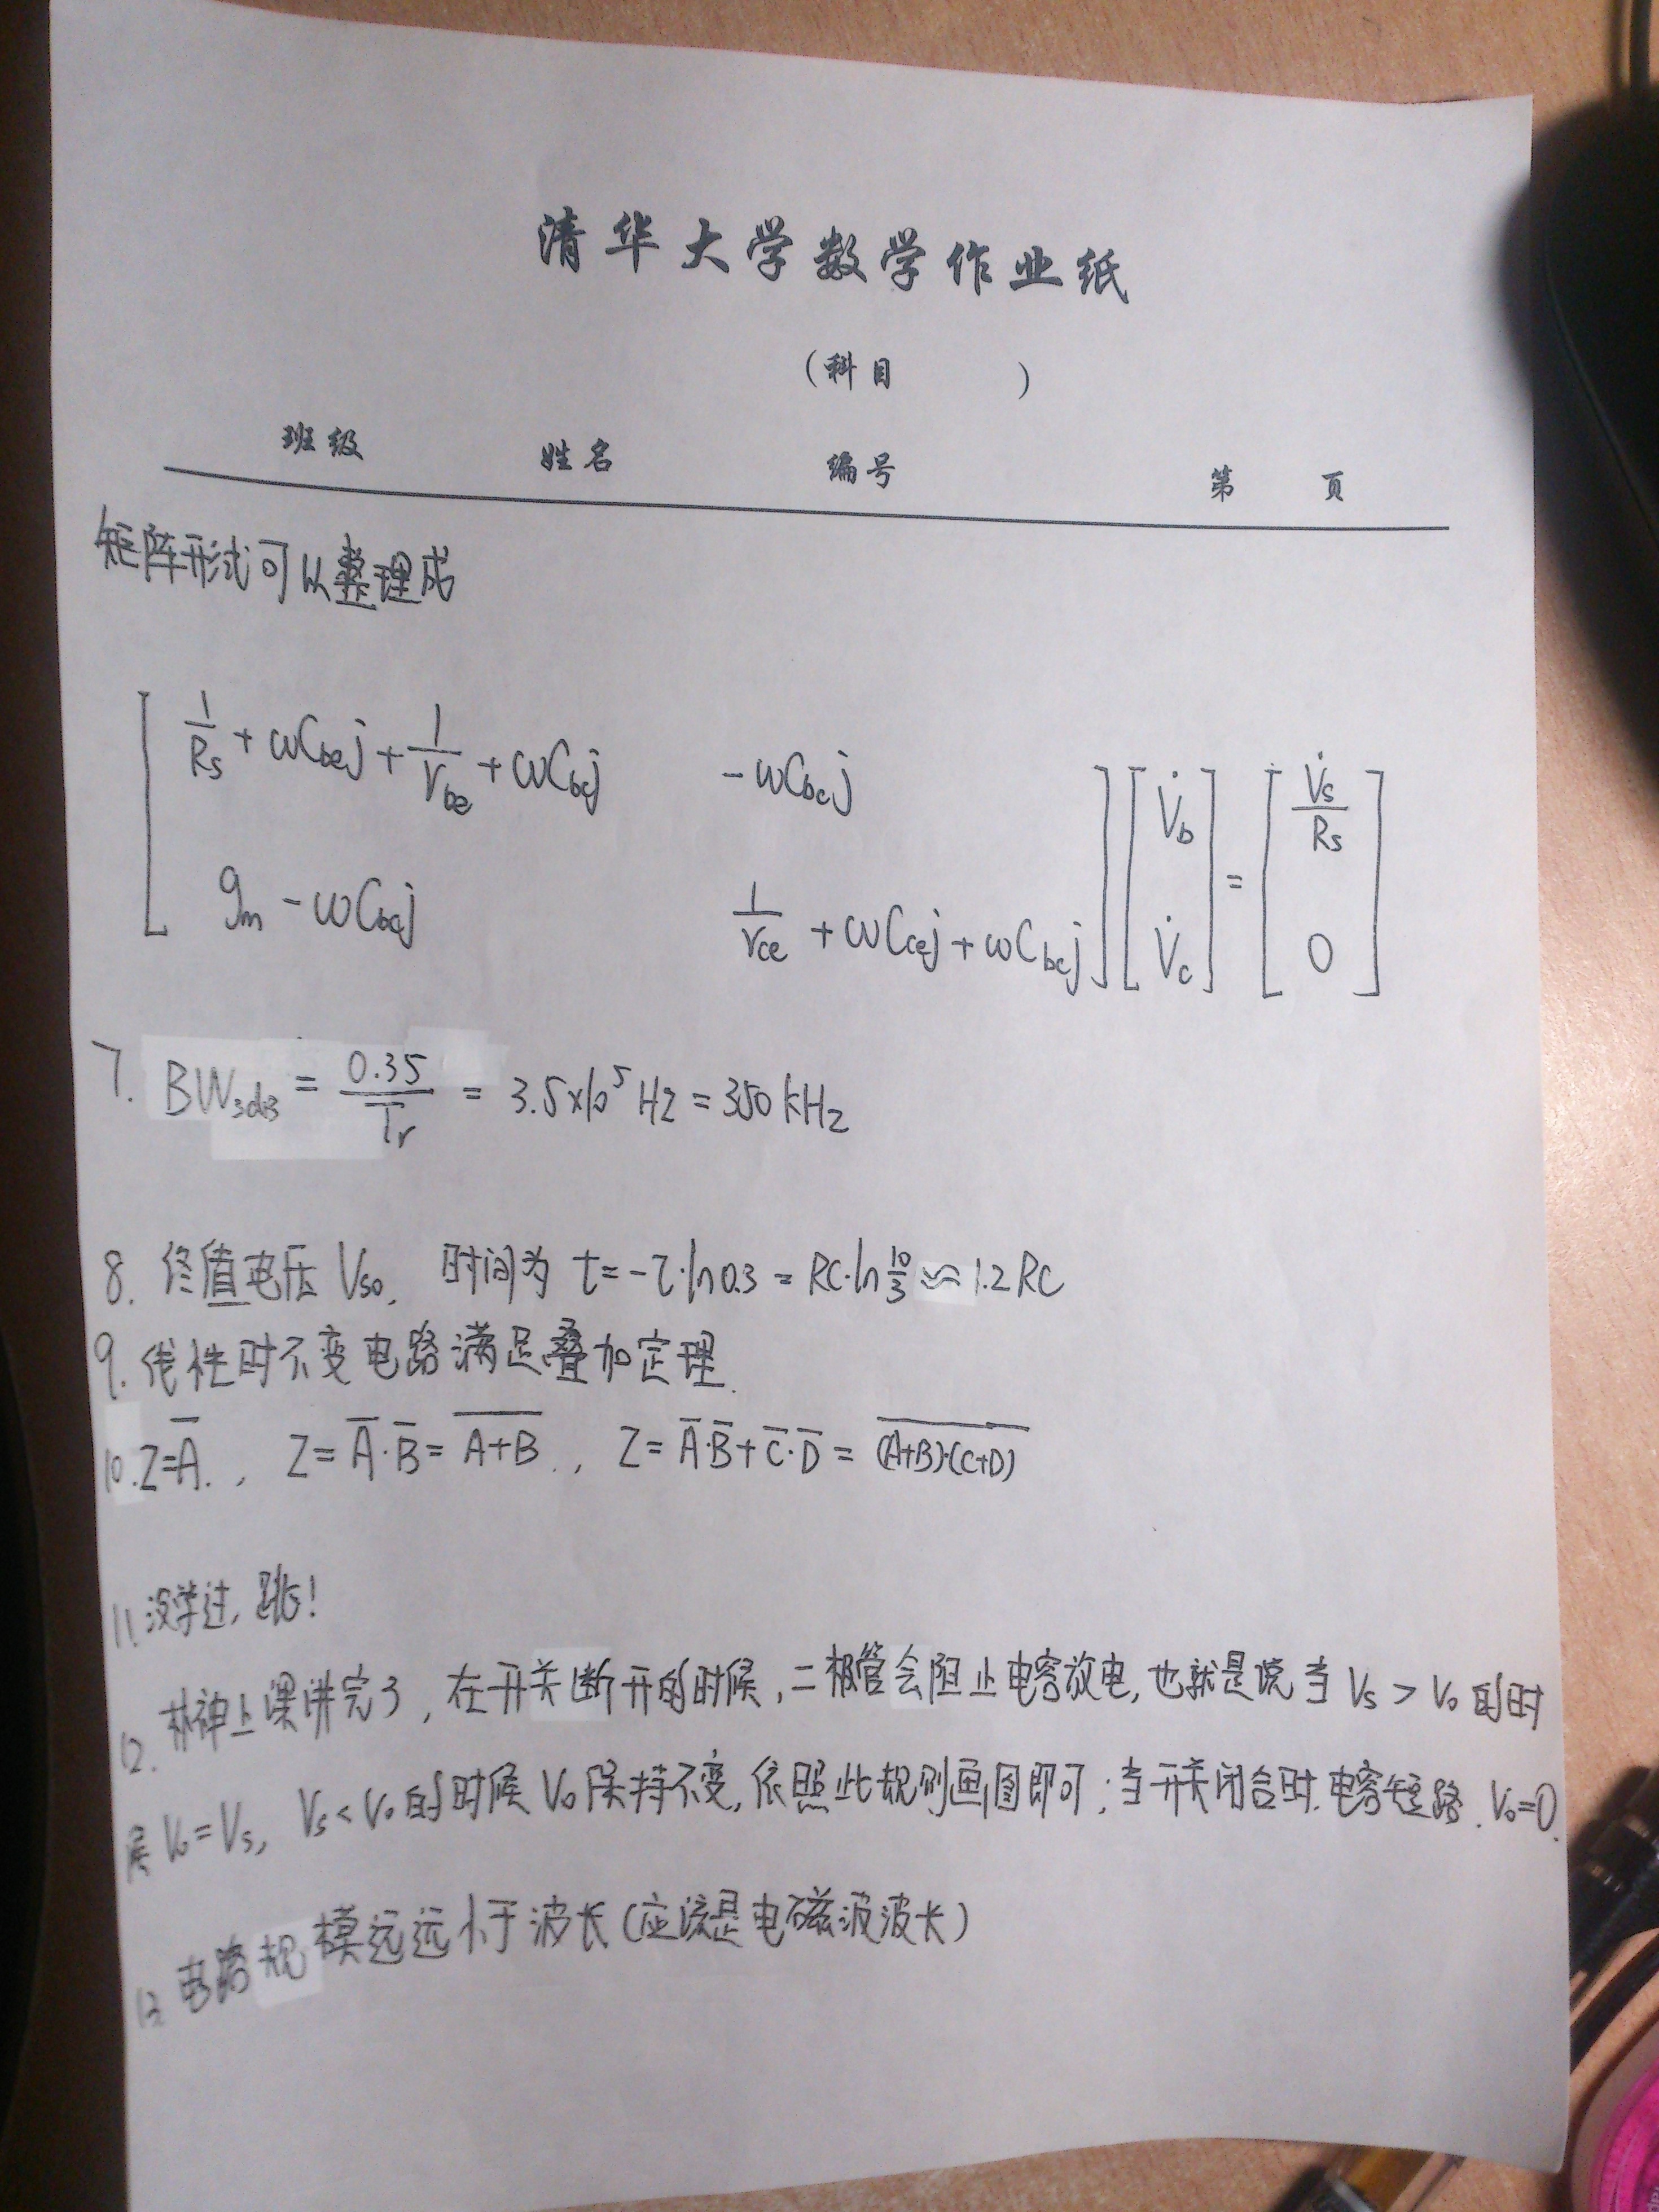 清华大学数学作业纸
(科目 )
班级 姓名 编号 第 页
矩阵形式可以整理成
[ 1/Rs + ωCbej + 1/rbe + ωCbcj   -ωCbcj ] [ V̇b ] = [ V̇s/Rs ]
[ gm - ωCbcj   1/rce + ωCcej + ωCbcj ] [ V̇c ] [ 0 ]
7. BW3dB = 0.35/Tr = 3.5×10⁵ Hz = 350 kHz
8. 终值电压 VS0, 时间为 t = -τ·ln0.3 = RC·ln 10/3 ≈ 1.2 RC
9. 线性时不变电路满足叠加定理.
10. Z=A̅. , Z = A̅·B̅ = \overline{A+B} . , Z = A̅·B̅ + C̅·D̅ = \overline{(A+B)·(C+D)}
11. 没学过, 跳!
12. 林神上课讲完了, 在开关断开的时候, 二极管会阻止电容放电, 也就是说当 Vs > Vo 的时
候 Vo = Vs, Vs < Vo 的时候 Vo 保持不变, 依照此规则画图即可; 当开关闭合时. 电容短路. Vo=0.
13. 电路规模远远小于波长 (应该是电磁波波长)